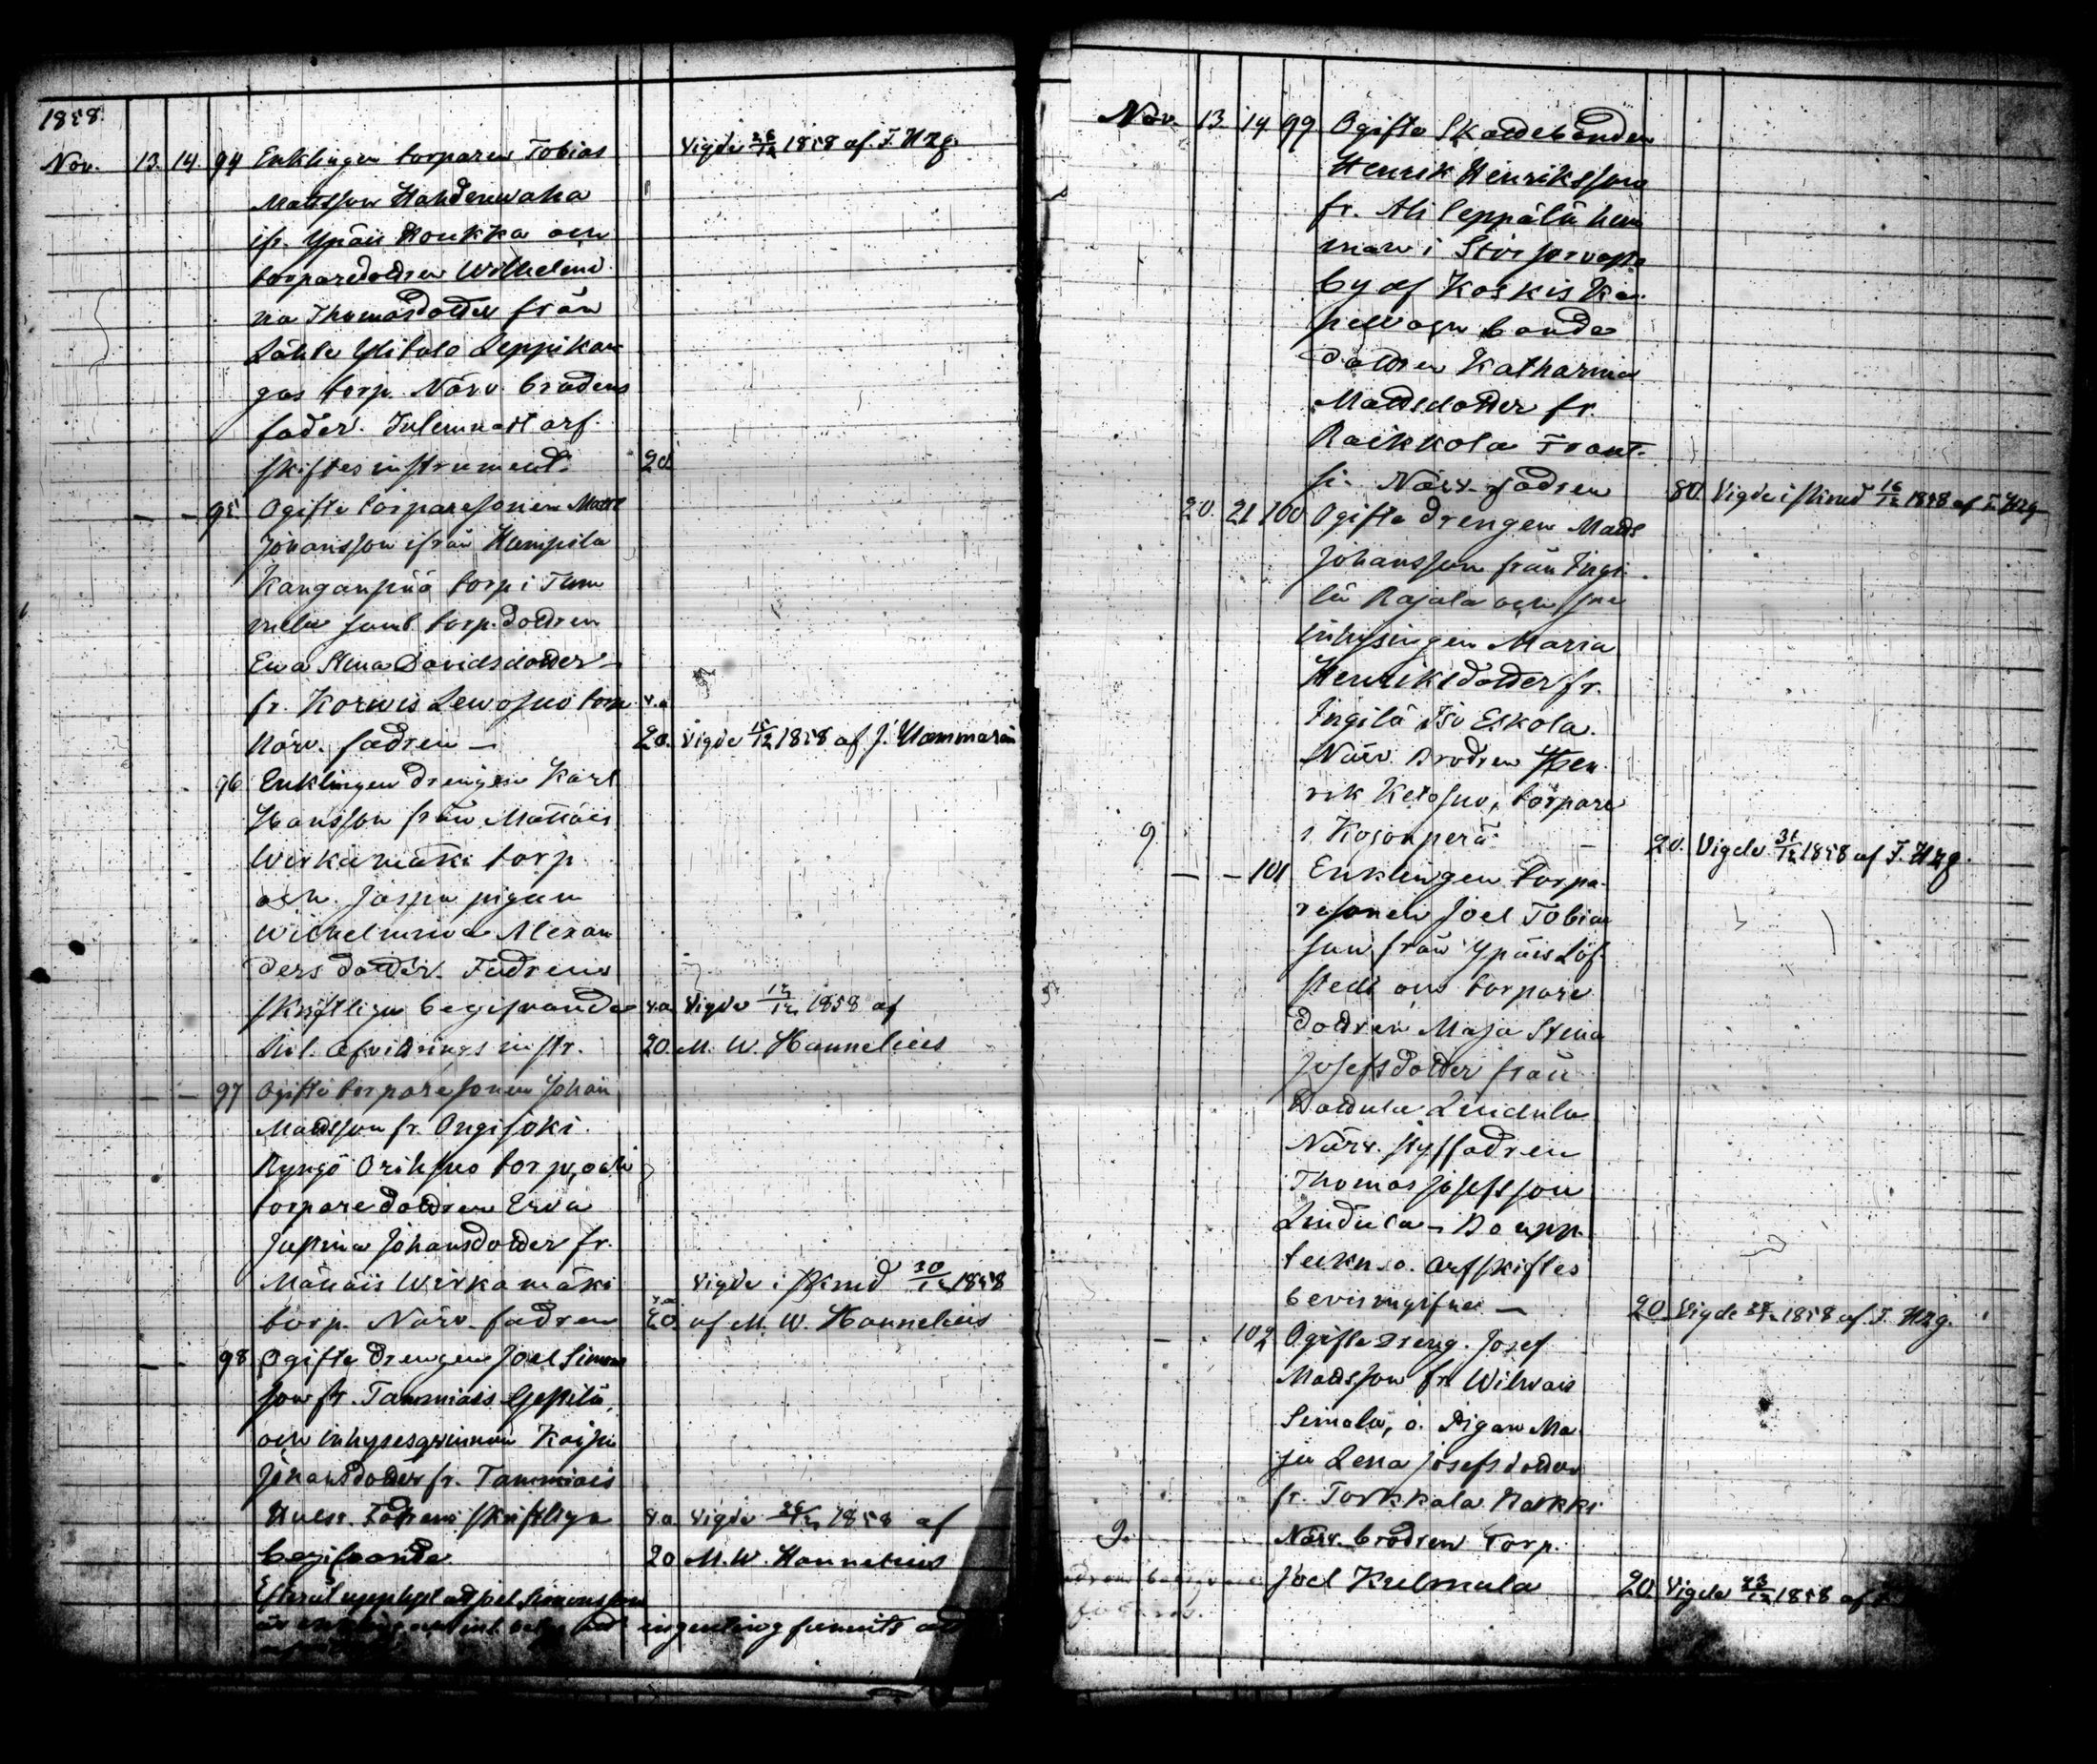 1858.
Nov. 13. 14. 94 Enklingen torparen Tobias Vigde 26/12 1858 af F. Hzg.
Mattsson Hahdenwaha
ifr. Ypäis Koukka och
torparedottren Wilhelmi
na Thomasdotter från
Lähte Ylitalo Leppikan
gas torp. Närv. brudens
fader. Inlemnadt arf.
skiftesinstrument. 20
— — 95. Ogifte torparesonen Matts
Johansson ifrån Humpila
Kanganpää torp i Tam
mela samt torp.dottren
Ewa Stina Davidsdotter
fr. Korwis Lewosuo torp r.a.
Närv. fadren — 20. Vigde 15/12 1858 af J. Hammarén
96 Enklingen drengen Karl
Hansson från Mattäis
Wirkamäki torp
och Jospa pigan
Wilhelmina Alexan
dersdotter. Fadrens
skriftliga begifvande r.a. Vigde 12/12 1858 af
Lil. afvittrings instr. 20. M. W. Hannelius
— — 97 Ogifte torparesonen Johan
Mattsson fr. Ongisoki
Ryngö Orihsuo torp, och
torparedottren Ewa
Justina Johansdotter fr.
Mattäis Wirkamäki Vigde i Skmd 30/12 1858
torp. Närv. fadren r.a. 20. af M. W. Hannelius
— — 98 Ogifte drengen Joel Simons
son fr. Tammiais Yestilä,
och inhysesqwinnan Kaisa
Johansdotter fr. Tammiais
skriftliga r.a. Vigde 26/12 1858 af
begifvande 20 M. W. Hannelius
upplyst att Joel Simonsson
ingenting funnits
Nov. 13. 14. 99 Ogifte Skattebonden
Henrik Henriksson
fr. Ali Seppälä hem
man i
by af Koskis Ka
pell ogm bonde
dottren Katharina
Mattsdotter fr.
Raikkola Frant
si. Närv. fadren 80. Vigde i Skmd 16/12 1858 af F. Hzg
20. 21 100 Ogifte drengen Matts
Johansson från Pirgi
lä Rajala och
inhysingen Maria
Henriksdotter fr.
Pirgilä Iso Eskola.
Närv. Brodren Hen
rik Ketosuo, torpare
i Kojonperä — 20. Vigde 31/12 1858 af F. Hzg.
— — 101 Enklingen torpa
resonen Joel Tobias
son från Ypäis Löf
stedt och torpare
dottren Maja Stina
Josefsdotter från
Lindula
Närv. styffadren
Thomas Josefsson
Lindula — Bo upp
tekn. o. Arfskiftes
bevis ingifne — 20. Vigde 1858 af F. Hzg.
— 102 Ogifte Dreng. Josef
Mattsson fr. Wilwais
Simola, o. Pigan Ma
ja Lena Josefsdotter
fr. Torkkala Markki
Närv. brodren Torp.
Joel Kulmala 20. Vigde 23/12 1858 af F.